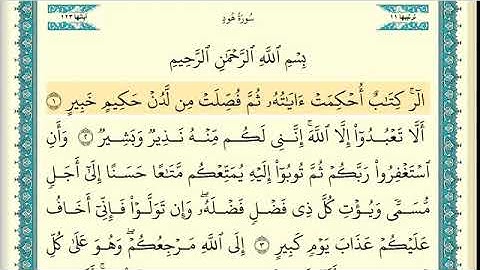 ترتيبها ١١ سُورَةُ هُودٍ آياتها ١٢٣
بِسْمِ ٱللَّهِ ٱلرَّحْمَٰنِ ٱلرَّحِيمِ
الٓرۚ كِتَٰبٌ أُحْكِمَتْ ءَايَٰتُهُۥ ثُمَّ فُصِّلَتْ مِن لَّدُنْ حَكِيمٍ خَبِيرٍ ١
أَلَّا تَعْبُدُوٓا۟ إِلَّا ٱللَّهَۚ إِنَّنِى لَكُم مِّنْهُ نَذِيرٌ وَبَشِيرٌ ٢ وَأَنِ
ٱسْتَغْفِرُوا۟ رَبَّكُمْ ثُمَّ تُوبُوٓا۟ إِلَيْهِ يُمَتِّعْكُم مَّتَٰعًا حَسَنًا إِلَىٰٓ أَجَلٍ
مُّسَمًّى وَيُؤْتِ كُلَّ ذِى فَضْلٍ فَضْلَهُۥۖ وَإِن تَوَلَّوْا۟ فَإِنِّىٓ أَخَافُ
عَلَيْكُمْ عَذَابَ يَوْمٍ كَبِيرٍ ٣ إِلَى ٱللَّهِ مَرْجِعُكُمْۖ وَهُوَ عَلَىٰ كُلِّ